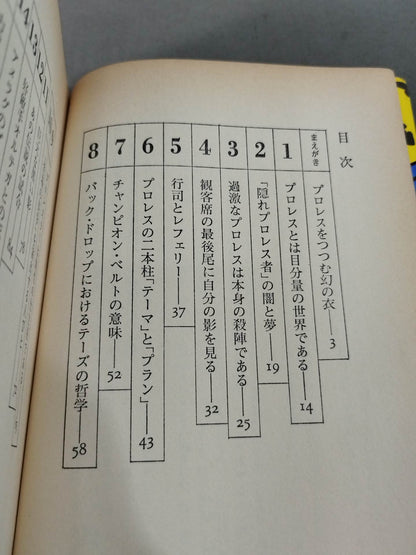 目次
まえがき プロレスをつつむ幻の衣——3
1 プロレスとは目分量の世界である——14
2 「隠れプロレス者」の闇と夢——19
3 過激なプロレスは本身の殺陣である——25
4 観客席の最後尾に自分の影を見る——32
5 行司とレフェリー——37
6 プロレスの二本柱「テーマ」と「プラン」——43
7 チャンピオン・ベルトの意味——52
8 バック・ドロップにおけるテーズの哲学——58
11
12
13
14